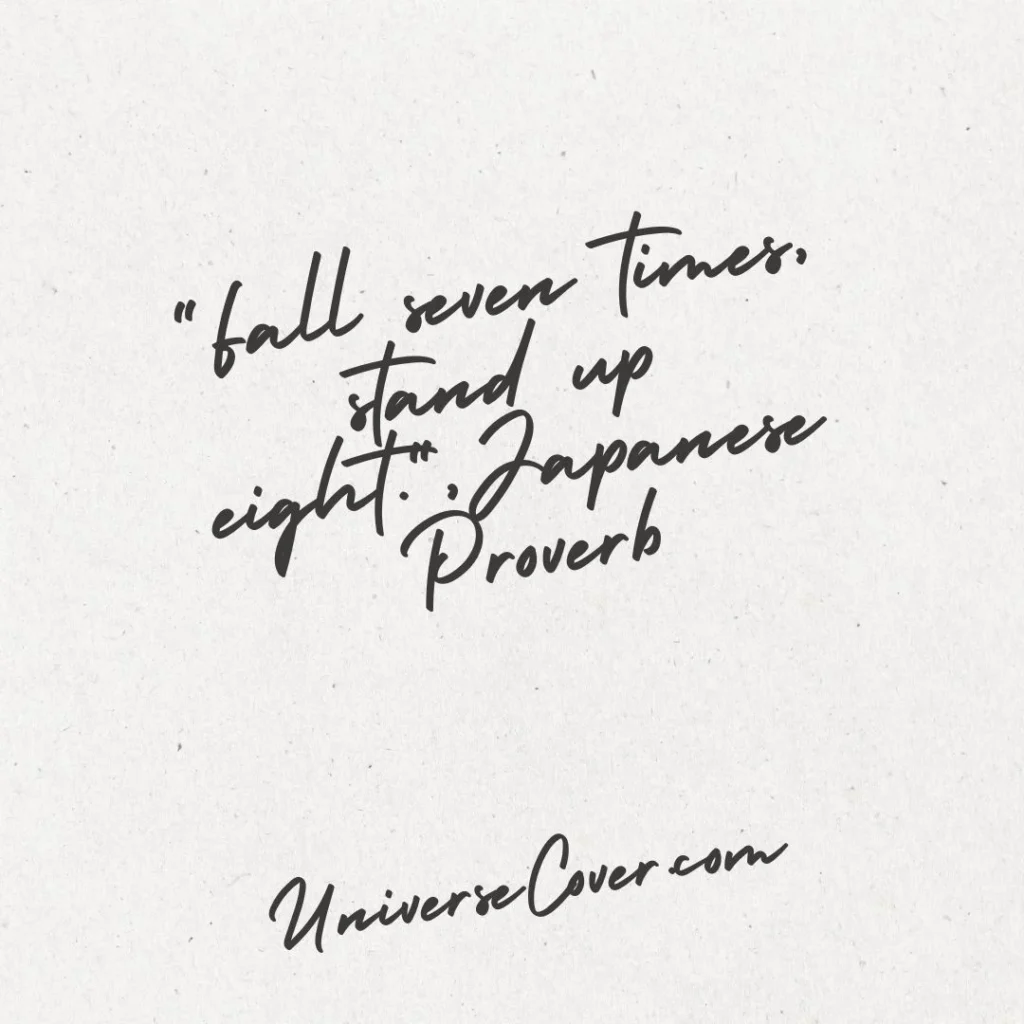 "fall seven times,
stand up
eight.", Japanese
Proverb
UniverseCover.com